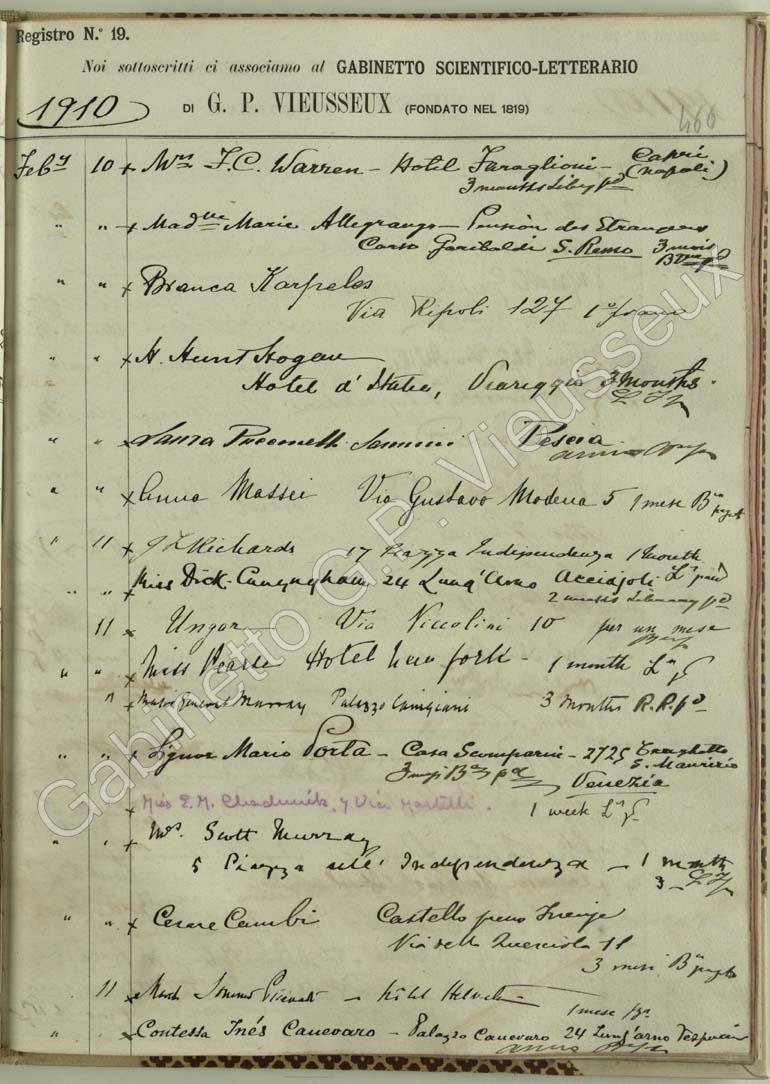 Registro N.º 19.
Noi sottoscritti ci associamo al GABINETTO SCIENTIFICO-LETTERARIO
1910
DI G. P. VIEUSSEUX (FONDATO NEL 1819)
466
Feby 10 x Mrs F.C. Warren - Hotel Faraglioni - Capri
(Napoli)
3 months Liby pd
" " x Madlle Marie - Pension des Etrangers
Corso Garibaldi S. Remo 3 mois
" " x Branca Karpeles
Via Ripoli 127
" " x H. Hunt Hogan
Hotel d'Italie, Viareggio 3 months.
" " x Pescia
" " x Anna Massei Via Gustavo Modena 5 1 mese
" 11 x Richards 17 Piazza Indipendenza 1 month
" " x Miss Dick-Cunyngham, 24 Lung'Arno Acciajoli
2 weeks Library pd
11 x Ungar Via Niccolini 10 per un mese
" " x Miss Pearse Hotel New York - 1 month
" x Major General Murray Palazzo Canigiani 3 months R.R. pd
" " x Signor Mario Porta - Casa Scomparin - 2725 Traghetto
S. Maurizio
3 mesi pd Venezia
x Miss E. M. Chadwick, 4 Via Martelli. 1 week
" " x Mrs. Scott Murray
5 Piazza dell' Independenza - 1 month
3 -
" " x Cesare Cambi Castello
Via della Querciola 11
3 mesi
11 x - Hôtel Helvetia
1 mese
" x Contessa Inés Canevaro - Palazzo Canevaro 24 Lung'arno
Gabinetto G.P. Vieusseux